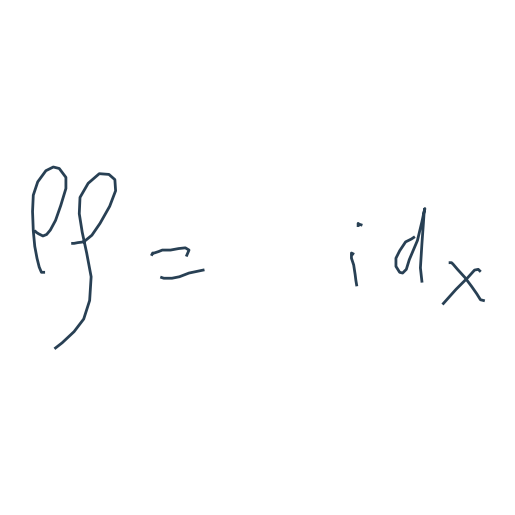 pf = id_x